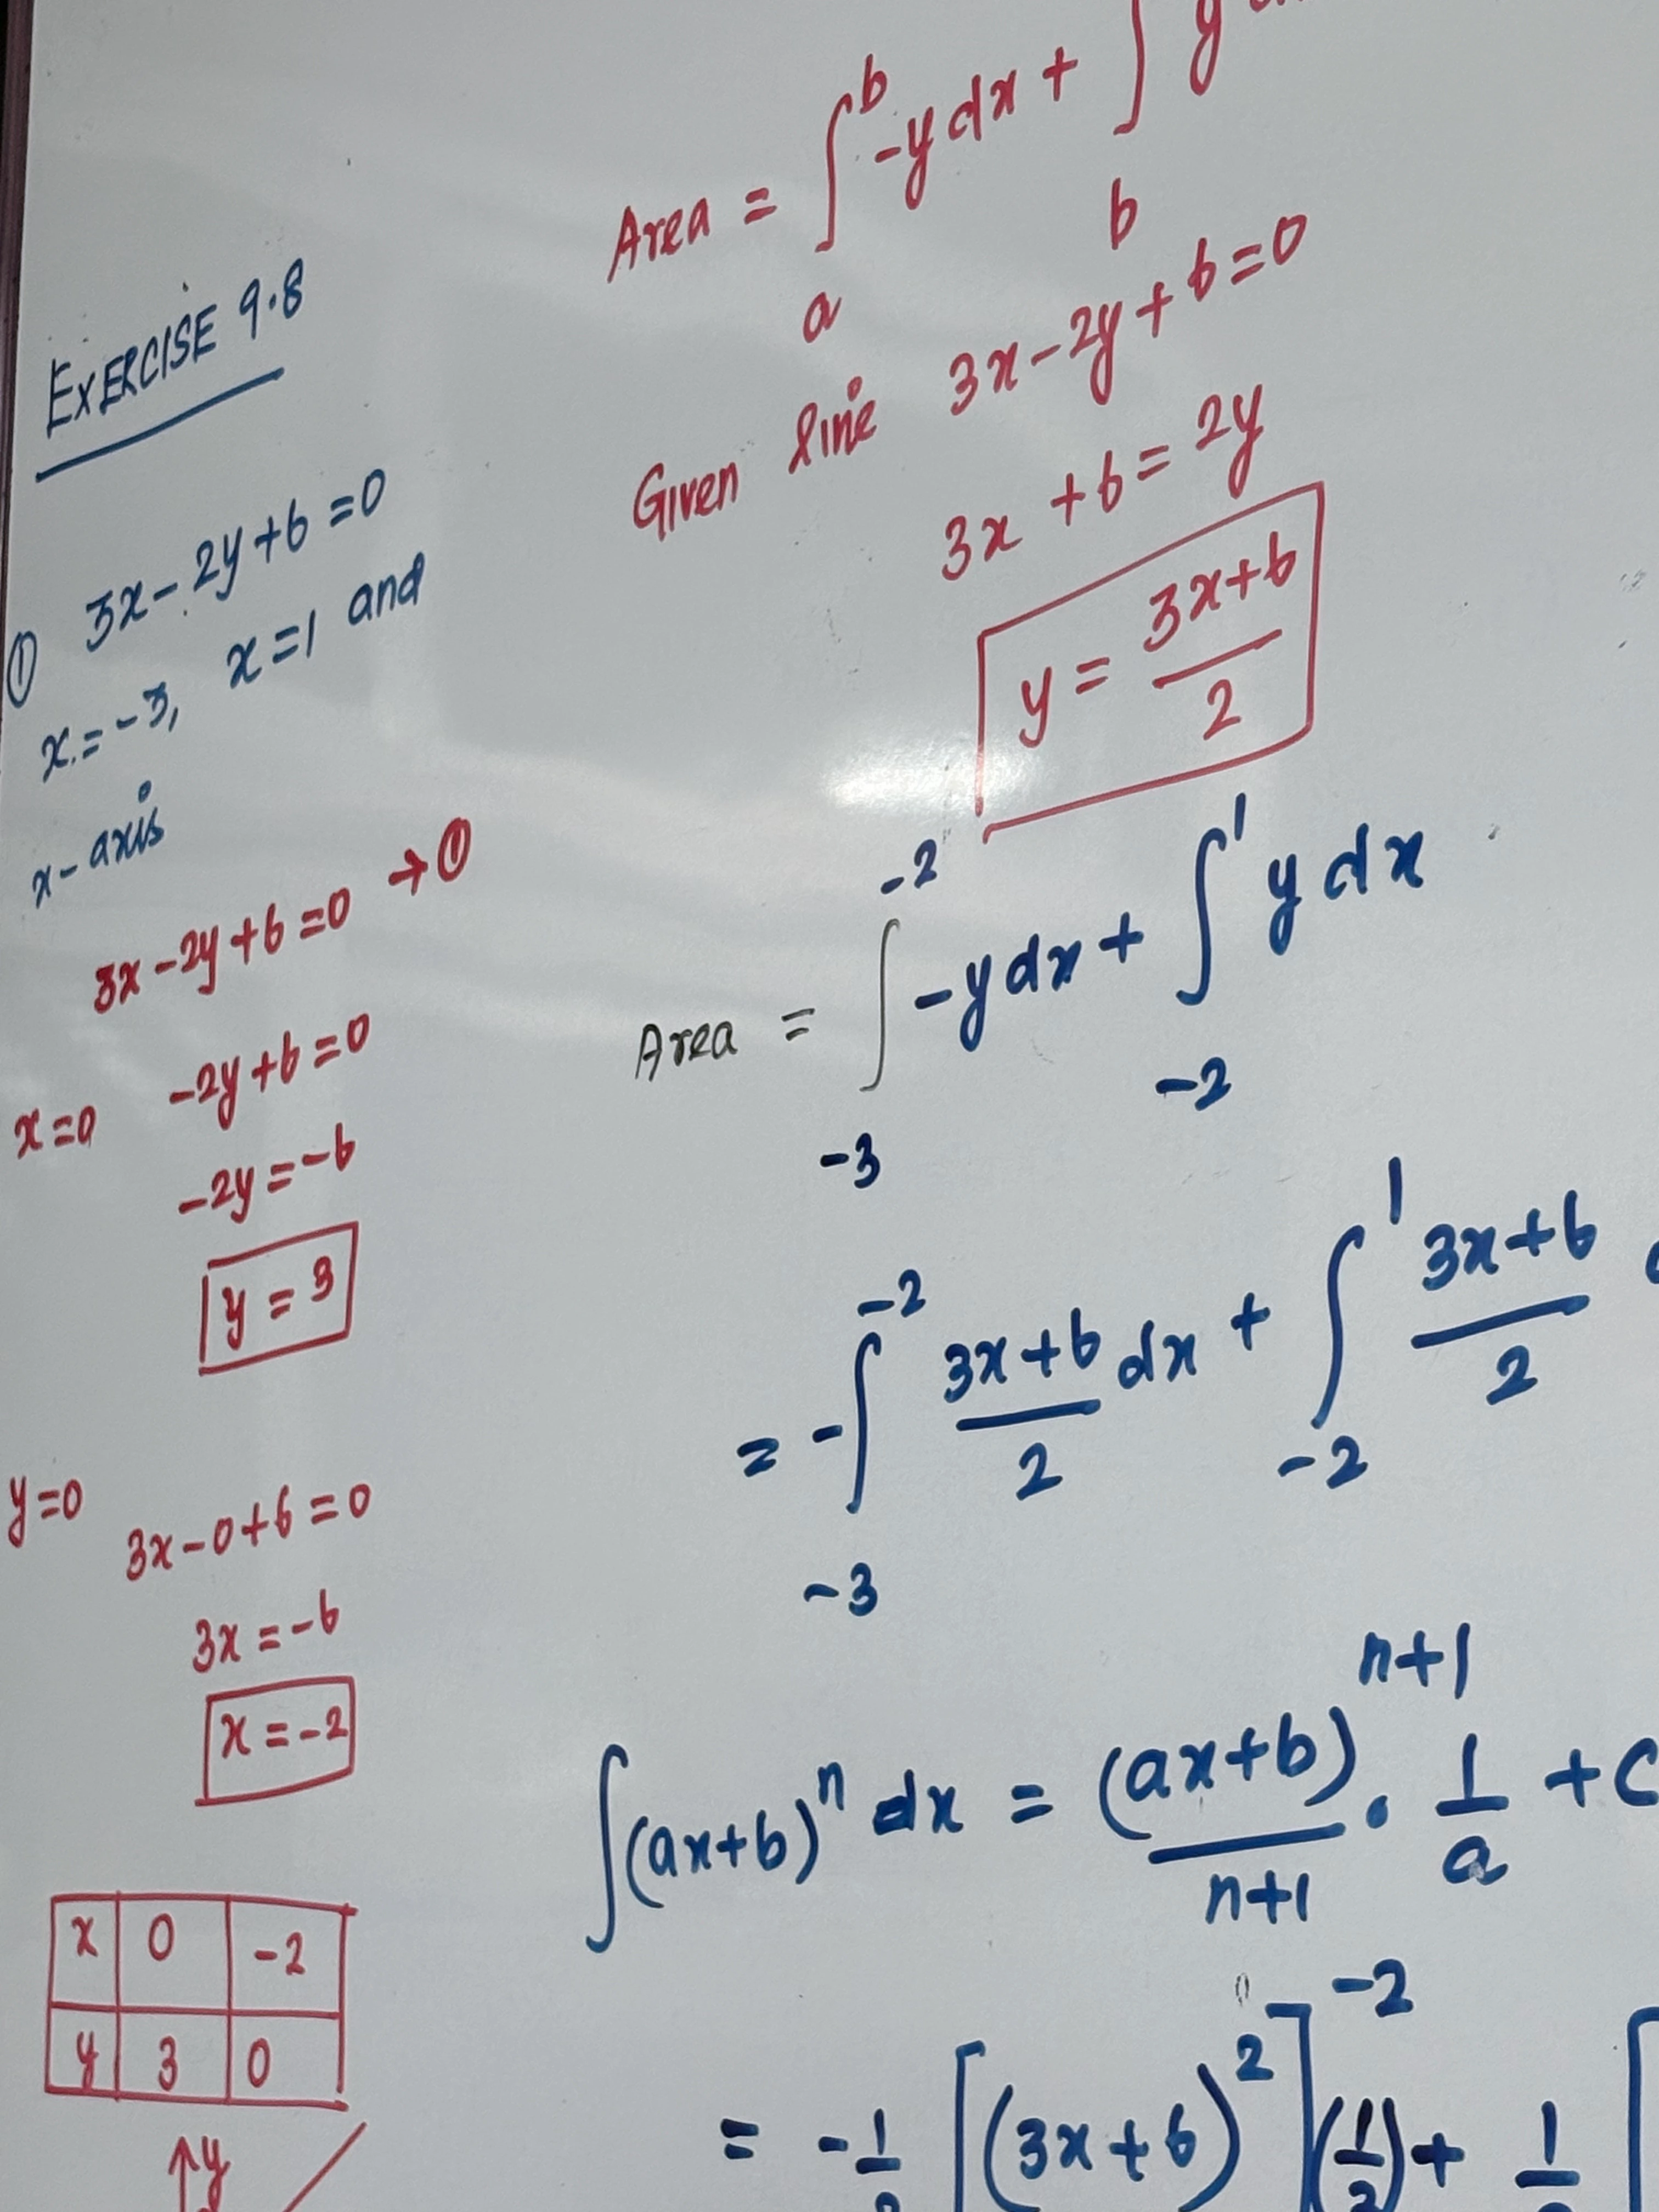 EXERCISE 9.8
① 3x - 2y + 6 = 0
x = -3, x = 1 and
x-axis
3x - 2y + 6 = 0 → ①
x = 0 -2y + 6 = 0
-2y = -6
y = 3
y = 0 3x - 0 + 6 = 0
3x = -6
x = -2
x 0 -2
y 3 0
↑y
Area = ∫_a^b -y dx + ∫_b y
Given line 3x - 2y + 6 = 0
3x + 6 = 2y
y = (3x+6)/2
Area = ∫_{-3}^{-2} -y dx + ∫_{-2}^{1} y dx
= -∫_{-3}^{-2} (3x+6)/2 dx + ∫_{-2}^{1} (3x+6)/2
∫(ax+b)^n dx = (ax+b)^{n+1}/(n+1) · 1/a + c
= -1/2 [(3x+6)^2]^{-2} (1/3) + 1